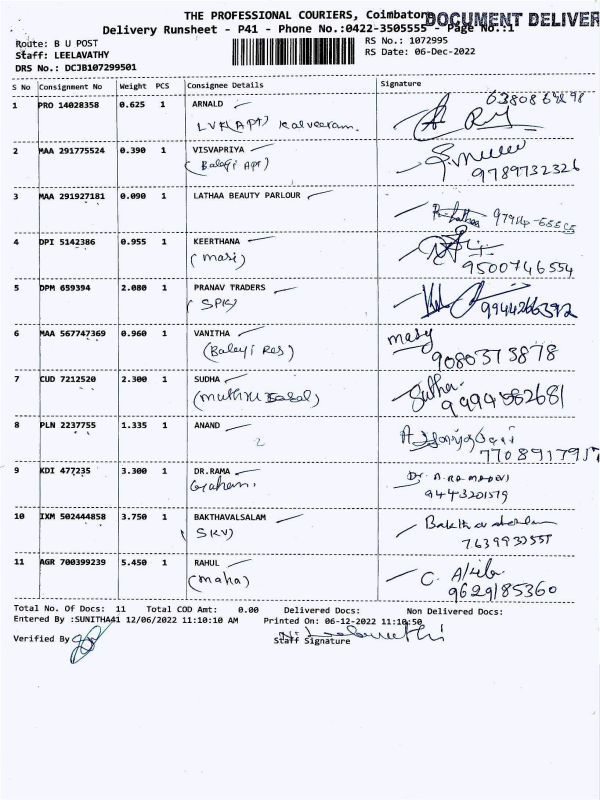 THE PROFESSIONAL COURIERS, Coimbatore
DOCUMENT DELIVER
Delivery Runsheet - P41 - Phone No.:0422-3505555 - Page No.:1
Route: B U POST
RS No.: 1072995
Staff: LEELAVATHY
RS Date: 06-Dec-2022
DRS No.: DCJB107299501
S No Consignment No Weight PCS Consignee Details Signature
1 PRO 14028358 0.625 1 ARNALD
LVK(APT) Kalveeram.
2 MAA 291775524 0.390 1 VISVAPRIYA
(Balaji APT)
9789732326
3 MAA 291927181 0.090 1 LATHAA BEAUTY PARLOUR
4 DPI 5142386 0.955 1 KEERTHANA
(masi)
9500746554
5 DPM 659394 2.080 1 PRANAV TRADERS
(SPK)
6 MAA 567747369 0.960 1 VANITHA
(Balaji Res)
masy
9080373878
7 CUD 7212520 2.300 1 SUDHA
Sutha.
9994582681
8 PLN 2237755 1.335 1 ANAND
2
7708917917
9 KDI 477235 3.300 1 DR.RAMA
Graham.
Dr. A. RAMADEVI
9443201579
10 IXM 502444858 3.750 1 BAKTHAVALSALAM
(SKV)
7639930555
11 AGR 700399239 5.450 1 RAHUL
(maha)
9629185360
Total No. Of Docs: 11 Total COD Amt: 0.00 Delivered Docs: Non Delivered Docs:
Entered By :SUNITHA41 12/06/2022 11:10:10 AM Printed On: 06-12-2022 11:10:50
Verified By
Staff Signature